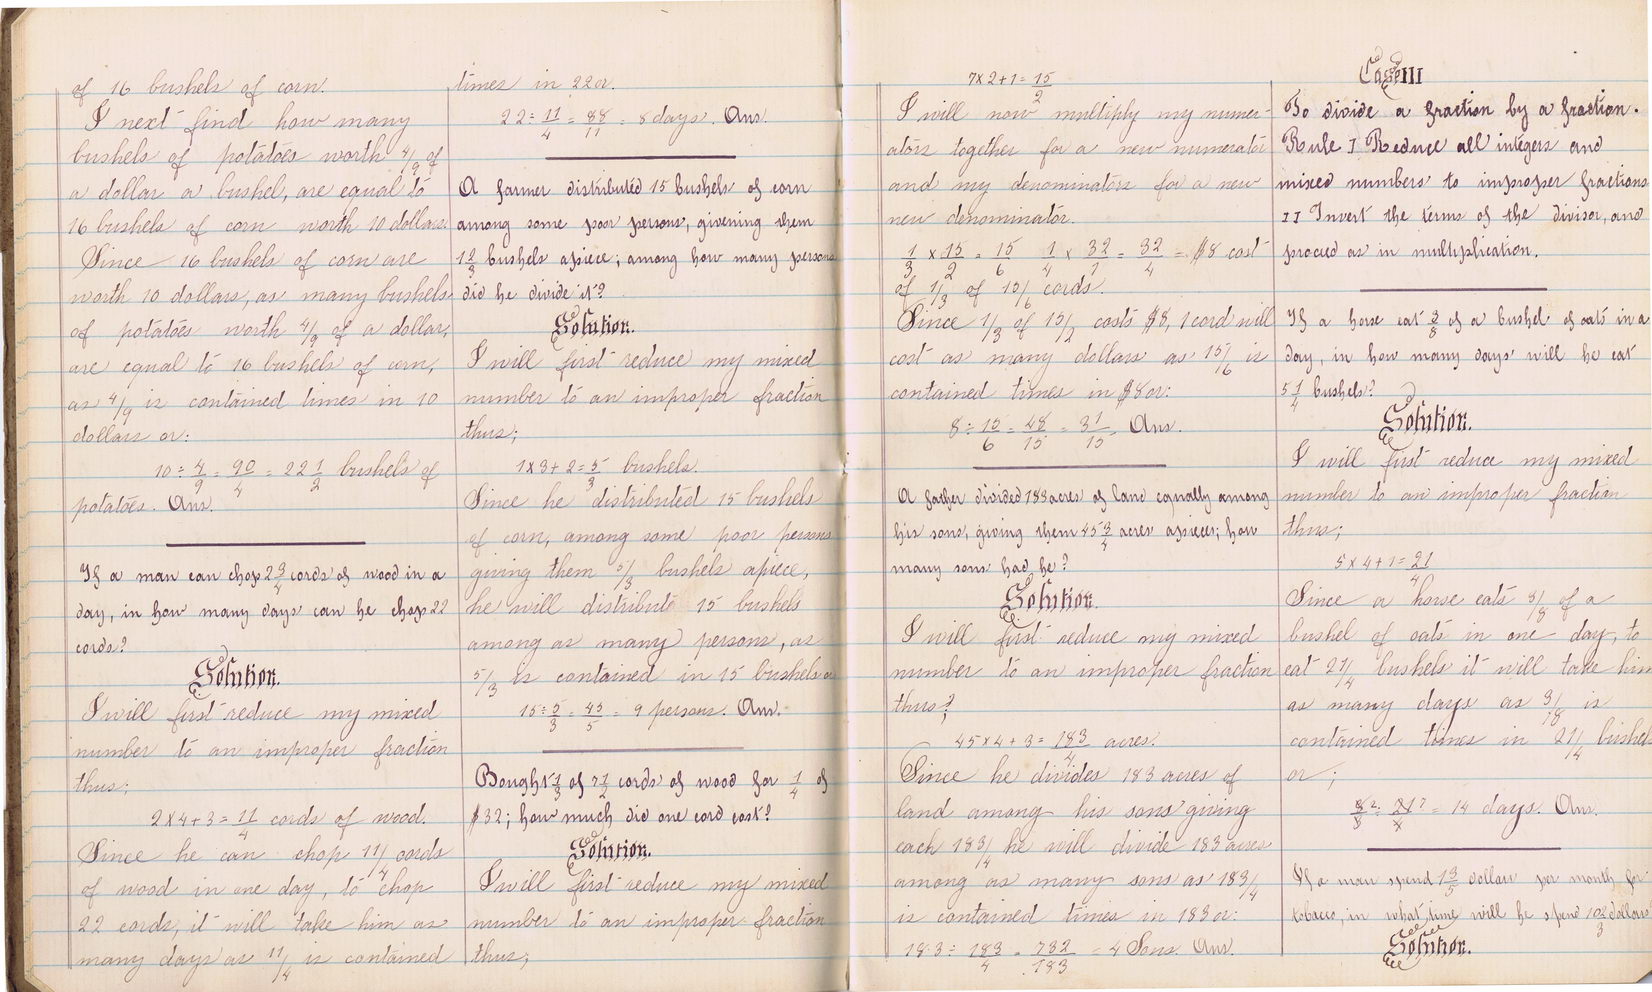 of 16 bushels of corn.
I next find how many
bushels of potatoes worth 4/9 of
a dollar a bushel, are equal to
16 bushels of corn worth 10 dollars.
Since 16 bushels of corn are
worth 10 dollars, as many bushels
of potatoes worth 4/9 of a dollar,
are equal to 16 bushels of corn,
as 4/9 is contained times in 10
dollars or:
10 ÷ 4/9 = 90/4 = 22 1/2 bushels of
potatoes. Ans.
If a man can chop 2 3/4 cords of wood in a
day, in how many days can he chop 22
cords?
Solution.
I will first reduce my mixed
number to an improper fraction
thus;
2 x 4 + 3 = 11/4 cords of wood.
Since he can chop 11/4 cords
of wood in one day, to chop
22 cords, it will take him as
many days as 11/4 is contained
times in 22 or.
22 ÷ 11/4 = 88/11 = 8 days. Ans.
A farmer distributed 15 bushels of corn
among some poor persons, givening them
1 2/3 bushels apiece; among how many persons
did he divide it?
Solution.
I will first reduce my mixed
number to an improper fraction
thus;
1 x 3 + 2 = 5/3 bushels.
Since he distributed 15 bushels
of corn, among some poor persons
giving them 5/3 bushels apiece,
he will distribute 15 bushels
among as many persons, as
5/3 is contained in 15 bushels or
15 ÷ 5/3 = 45/5 = 9 persons. Ans.
Bought 1/3 of 7 1/2 cords of wood for 1/4 of
$32; how much did one cord cost?
Solution.
I will first reduce my mixed
number to an improper fraction
thus;
7 x 2 + 1 = 15/2
I will now multiply my numer-
ators together for a new numerator
and my denominators for a new
new denominator.
1/3 x 15/2 = 15/6 1/4 x 32/1 = 32/4 = $8 cost
of 1/3 of 15/6 cords.
Since 1/3 of 15/2 costs $8, 1 cord will
cost as many dollars as 15/6 is
contained times in $8 or:
8 ÷ 15/6 = 48/15 = 3 1/15. Ans.
A father divided 183 acres of land equally among
his sons, giving them 45 3/4 acres apiece; how
many sons had he?
Solution.
I will first reduce my mixed
number to an improper fraction
thus?
45 x 4 + 3 = 183/4 acres.
Since he divides 183 acres of
land among his sons giving
each 183/4 he will divide 183 acres
among as many sons as 183/4
is contained times in 183 or:
183 ÷ 183/4 = 732/183 = 4 Sons. Ans.
Case III
To divide a fraction by a fraction.
Rule I Reduce all integers and
mixed numbers to improper fractions
II Invert the terms of the divisor, and
proceed as in multiplication.
If a horse eat 3/8 of a bushel of oats in a
day, in how many days will he eat
5 1/4 bushels?
Solution.
I will first reduce my mixed
number to an improper fraction
thus;
5 x 4 + 1 = 21/4
Since a horse eats 3/8 of a
bushel of oats in one day, to
eat 21/4 bushels it will take him
as many days as 3/8 is
contained times in 21/4 bushels
or;
= 14 days. Ans.
If a man spend 1 3/5 dollars per month for
tobacco, in what time will he spend 10 2/3 dollars
Solution.